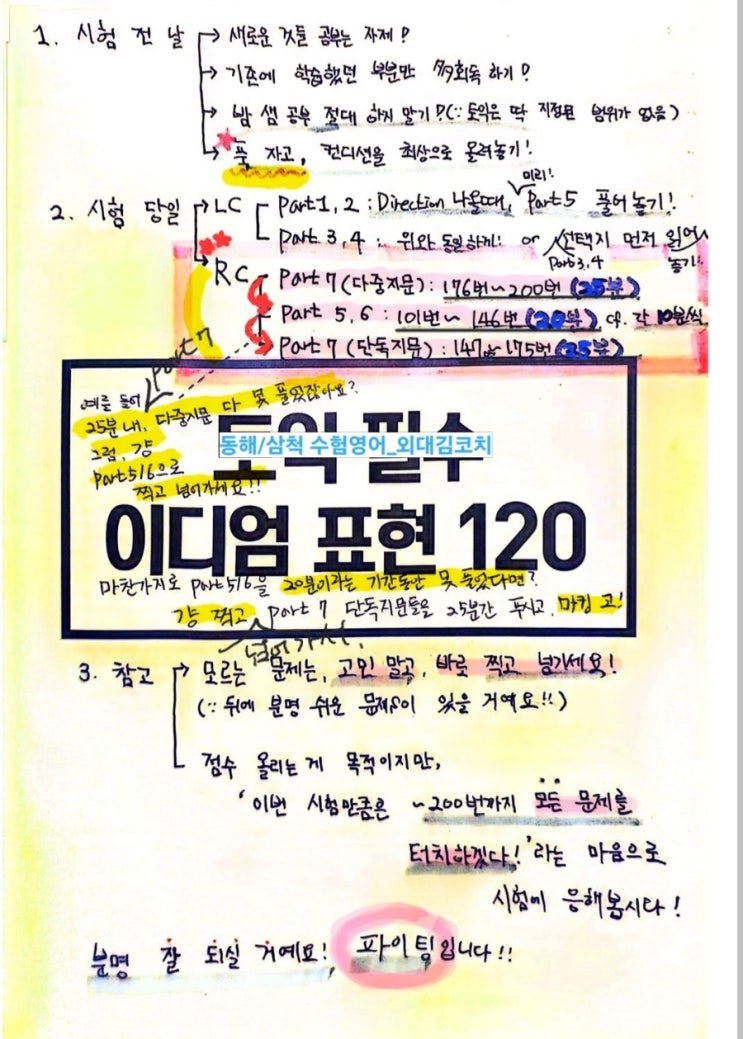 1. 시험 전 날 → 새로운 것들 공부는 자제!
→ 기존에 학습했던 부분만 多회독 하기!
→ 밤 샘 공부 절대 하지 말기!(∵ 토익은 딱 지정된 범위가 없음)
→ 푹 자고, 컨디션을 최상으로 올려놓기!
2. 시험 당일 → LC Part 1, 2 : Direction 나올때, 미리! Part 5 풀어 놓기!
Part 3, 4 : 위와 동일하게! or Part 3, 4 선택지 먼저 읽어놓기!
→ RC Part 7 (다중지문) : 176번~200번 (25분)
Part 5, 6 : 101번~ 146번 (20분) cf. 각 10분씩
Part 7 (단독지문) : 147~175번 (25분)
예를 들어 Part 7
25분 내, 다중지문 다 못 풀었잖아요?
그럼, 걍
Part 5/6으로
찍고 넘어가세요!!
토익 필수
동해/삼척 수험영어_외대김코치
이디엄 표현 120
마찬가지로 Part 5/6을 20분이라는 기간동안 못 풀었다면?
걍 찍고 넘어가서, Part 7 단독지문들을 25분간 푸시고, 마킹 고!
3. 참고 → 모르는 문제는, 고민 말고, 바로 찍고 넘기세요!
(∵ 뒤에 분명 쉬운 문제s이 있을 거예요!!)
점수 올리는 게 목적이지만,
'이번 시험만큼은 ~200번까지 모든 문제를
터치하겠다!'라는 마음으로
시험에 응해봅시다!
분명 잘 되실 거예요! 파이팅입니다!!